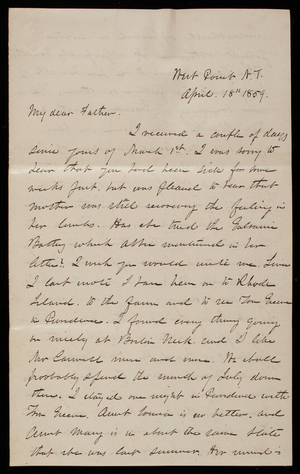 West Point N.Y.
April. 18th 1859.
My dear Father.
I received a couple of days
since yours of March 1st. I was sorry to
hear that you had been sick for some
weeks past, but was pleased to hear that
Mother was still recovering the feeling in
her limbs. Has she tried the Galvanic
Battery which Abbie mentioned in her
letter? I wish you would write me. Since
I last wrote I have been on to Rhode
Island. to the farm and to see Tom Greene
in Providence. I found every thing going
on nicely at Boston Neck and I like
Mr Caswell more and more. We shall
probably spend the month of July down
there. I stayed one night in Providence with
Tom Greene. Aunt Louisa is no better, and
Aunt Mary is in about the same state
that she was last summer. Her mind is